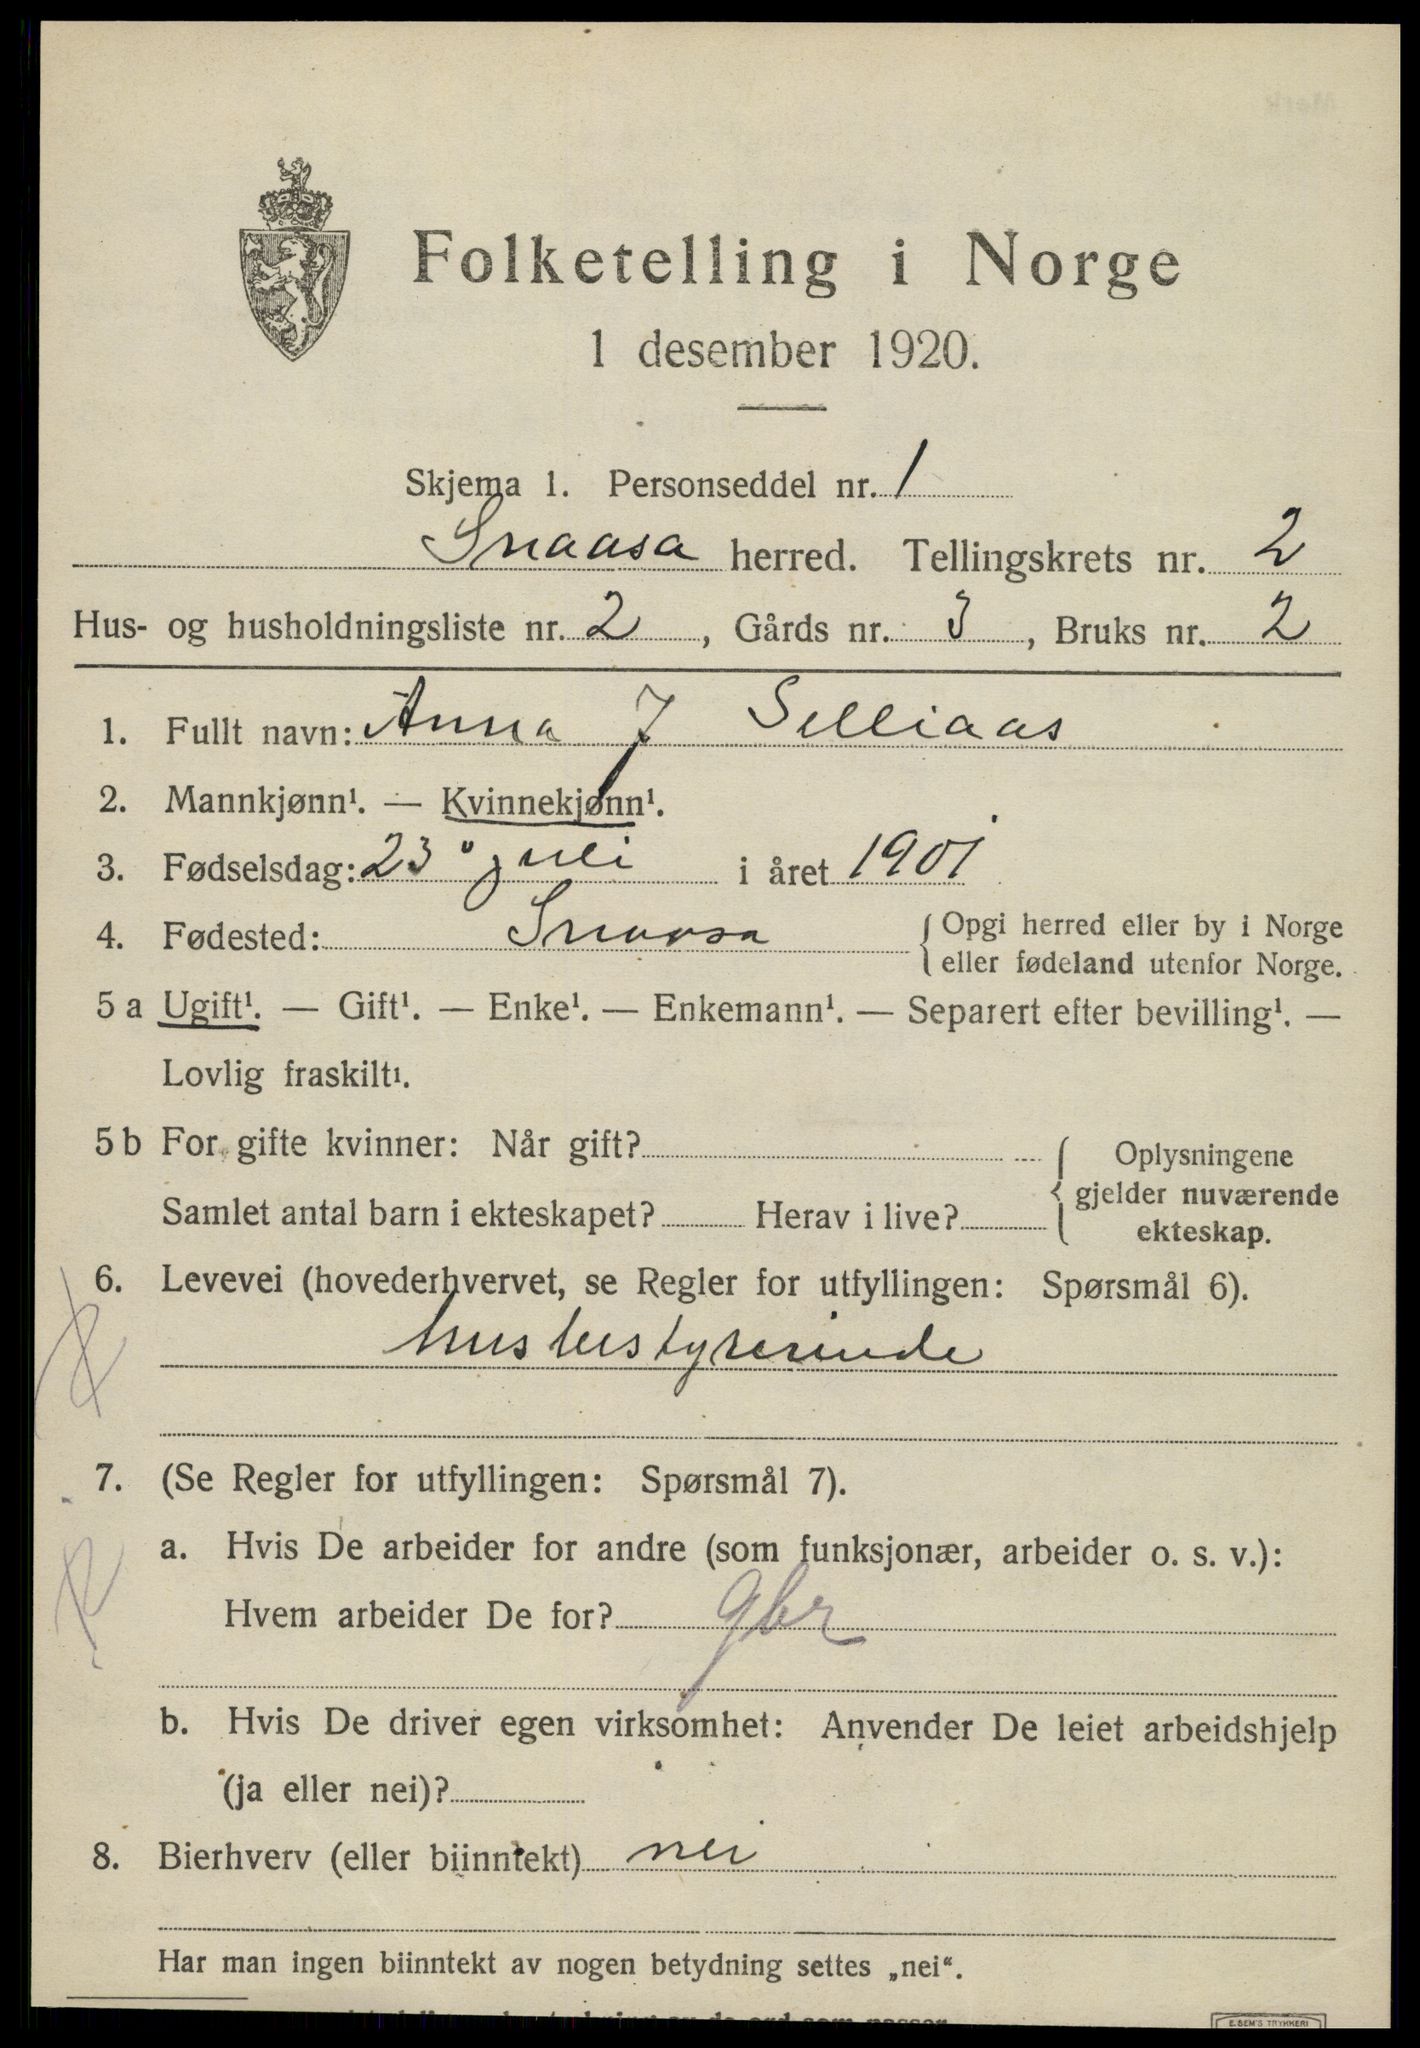 Folketelling i Norge
1 desember 1920.
Skjema 1. Personseddel nr. 1
Snaasa herred. Tellingskrets nr. 2
Hus- og husholdningsliste nr. 2, Gårds nr. 3, Bruks nr. 2
1. Fullt navn: Anna J Selliaas
2. Mannkjønn¹. — Kvinnekjønn¹.
3. Fødselsdag: 23 juli i året 1901
4. Fødested: Snaasa { Opgi herred eller by i Norge
eller fødeland utenfor Norge.
5 a Ugift¹. — Gift¹. — Enke¹. — Enkemann¹. — Separert efter bevilling¹. —
Lovlig fraskilt¹.
5 b For gifte kvinner: Når gift? { Oplysningene
gjelder nuværende
Samlet antal barn i ekteskapet? Herav i live?
ekteskap.
6. Levevei (hovederhvervet, se Regler for utfyllingen: Spørsmål 6).
husbestyrerinde
7. (Se Regler for utfyllingen: Spørsmål 7).
a. Hvis De arbeider for andre (som funksjonær, arbeider o. s. v.):
Hvem arbeider De for? gbr
b. Hvis De driver egen virksomhet: Anvender De leiet arbeidshjelp
(ja eller nei)?
8. Bierhverv (eller biinntekt) nei
Har man ingen biinntekt av nogen betydning settes „nei“.
E. SEM'S TRYKKERI